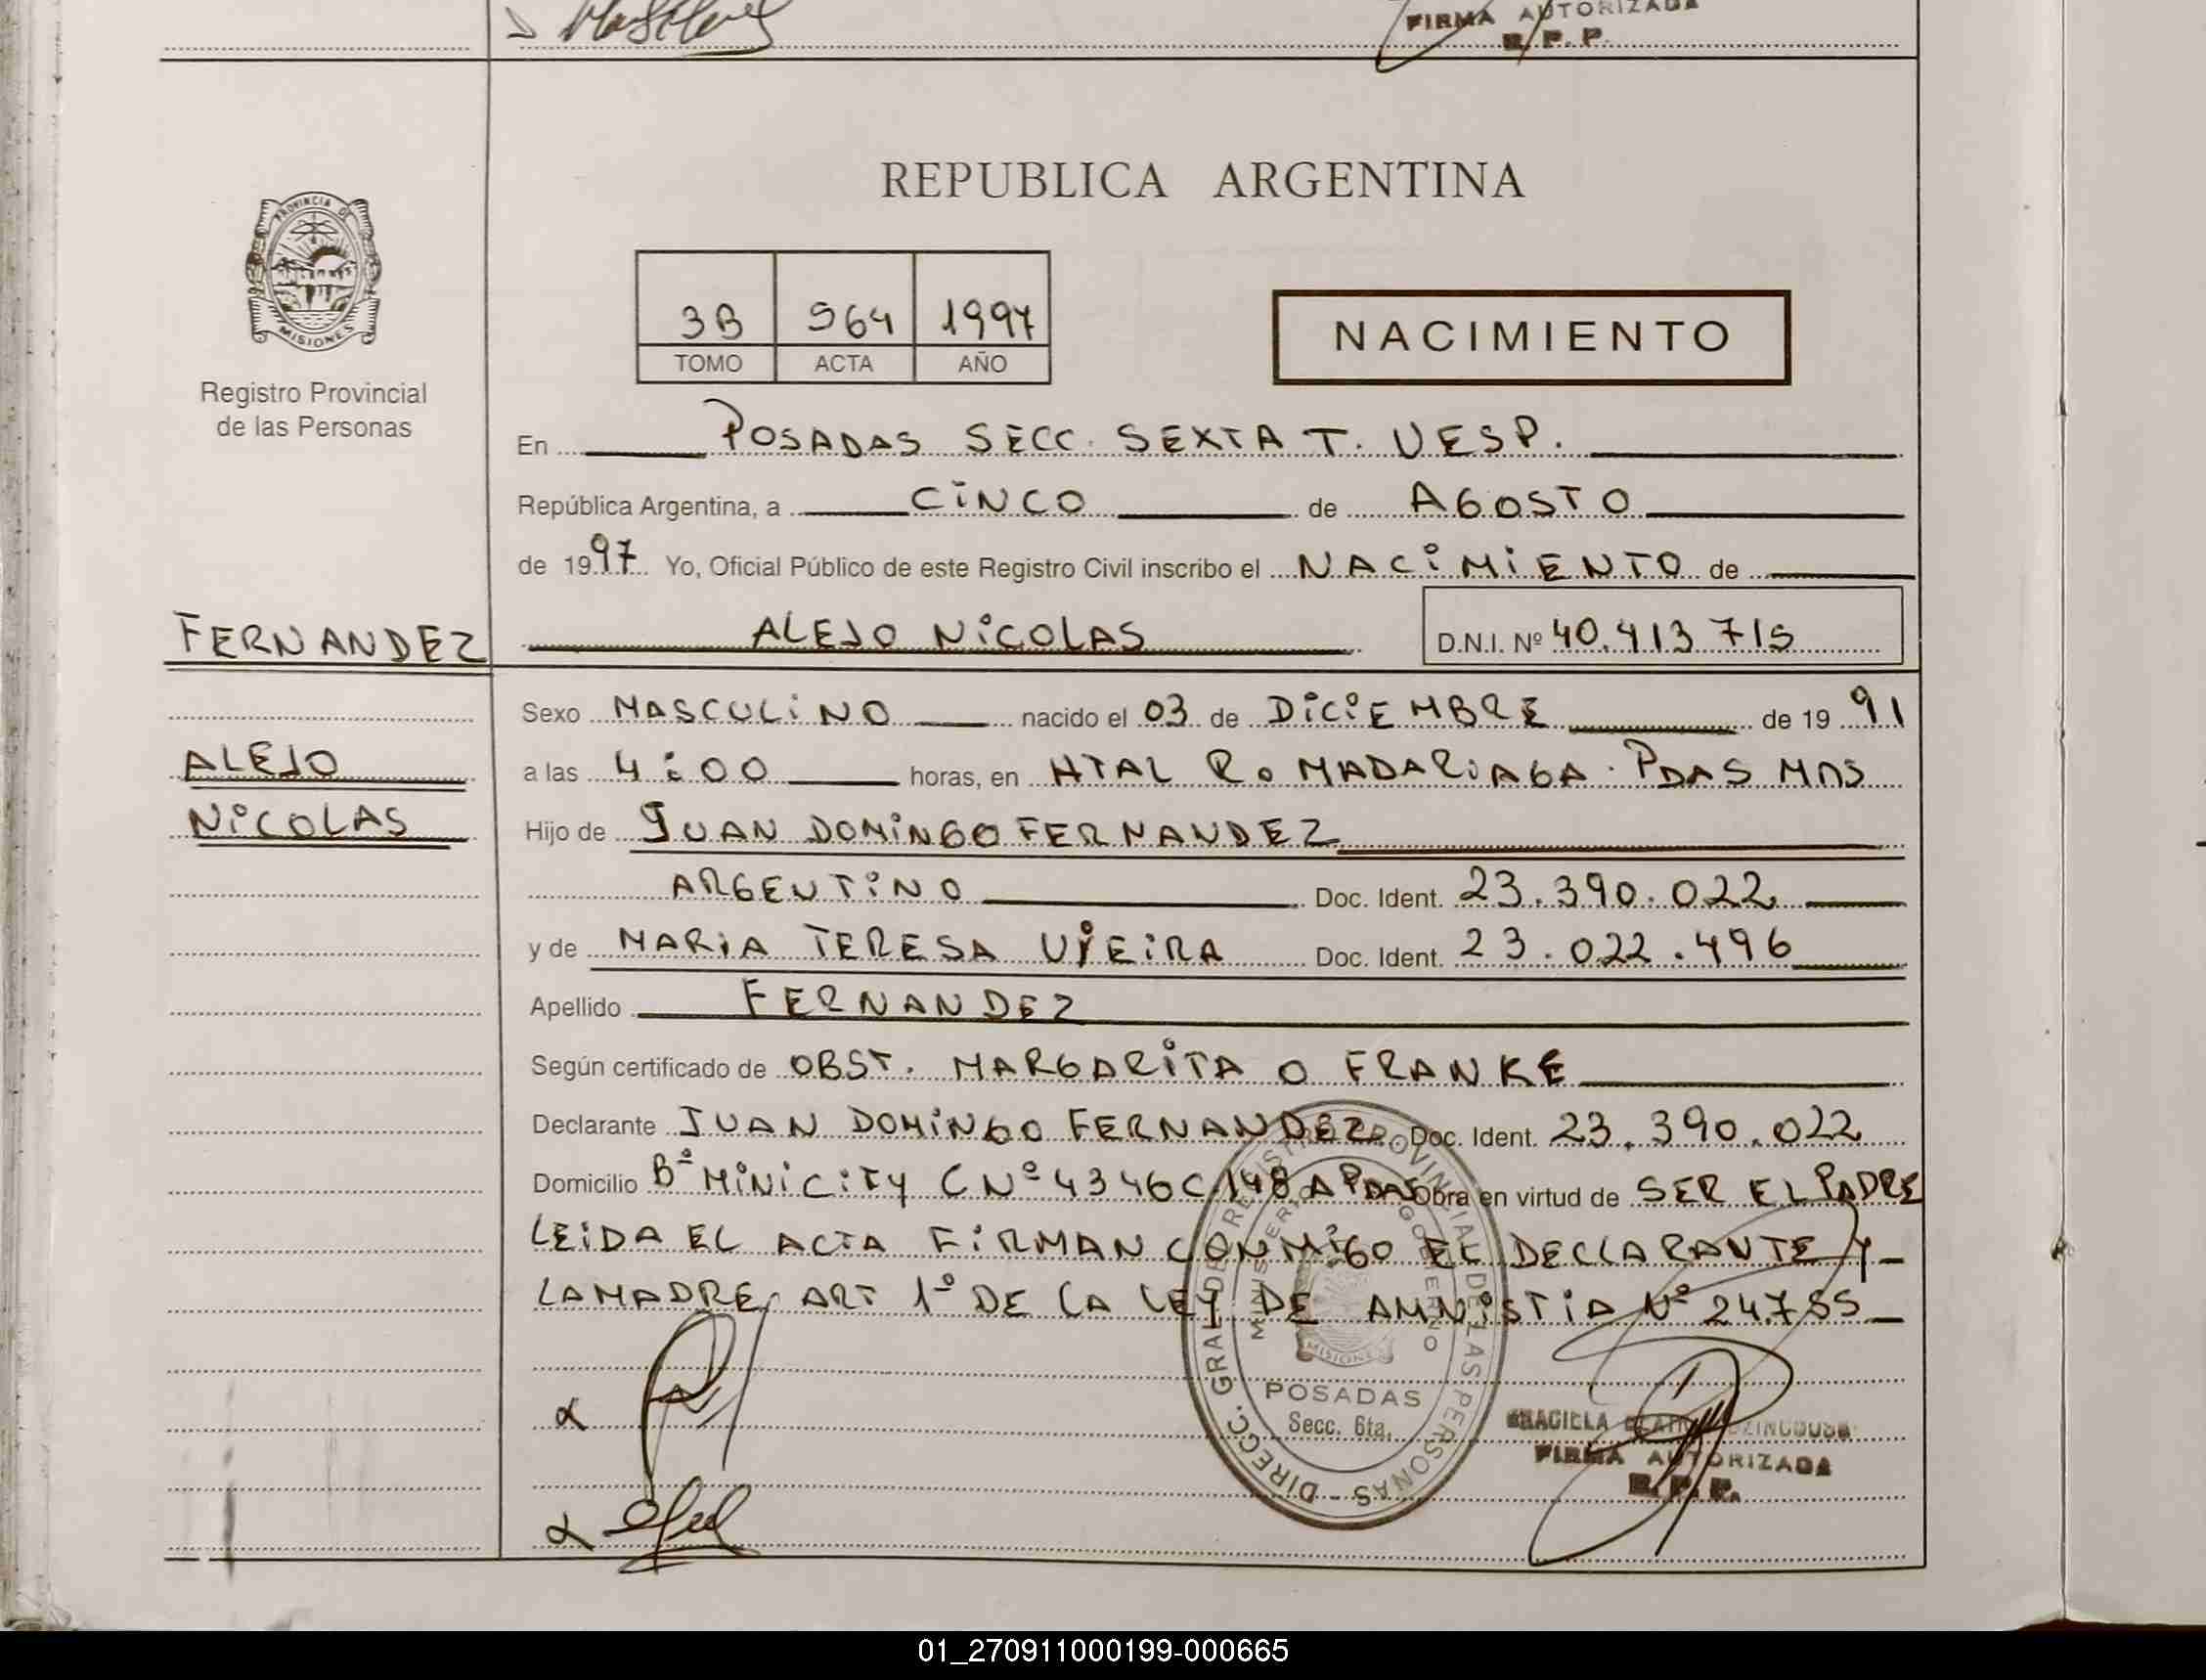 FIRMA AUTORIZADA
R. P. P.
PROVINCIA DE
MISIONES
Registro Provincial
de las Personas
REPUBLICA ARGENTINA
3B 564 1997
TOMO ACTA AÑO
NACIMIENTO
En POSADAS SECC. SEXTA T. VESP.
República Argentina, a CINCO de AGOSTO
de 1997 Yo, Oficial Público de este Registro Civil inscribo el NACIMIENTO de
FERNANDEZ ALEJO NICOLAS D.N.I. Nº 40.413 715
Sexo MASCULINO nacido el 03 de DICIEMBRE de 19 91
ALEJO a las 4:00 horas, en HTAL R. MADARIAGA. PDAS MNS
NICOLAS Hijo de JUAN DOMINGO FERNANDEZ
ARGENTINO Doc. Ident. 23.390.022
y de MARIA TERESA VIEIRA Doc. Ident. 23.022.496
Apellido FERNANDEZ
Según certificado de OBST. MARGARITA O FRANKE
Declarante JUAN DOMINGO FERNANDEZ Doc. Ident. 23.390.022
Domicilio Bº MINICITY C Nº 4346 C.148 A PDAS Obra en virtud de SER EL PADRE
LEIDA EL ACTA FIRMAN CONMIGO EL DECLARANTE Y
LA MADRE, ART 1º DE LA LEY DE AMNISTIA Nº 24.755
DIRECC. GRAL DE REGISTRO PROVINCIAL DE LAS PERSONAS
MINISTERIO GOBIERNO
MISIONES
POSADAS
Secc. 6ta.
GRACIELA
FIRMA AUTORIZADA
R. P. P.
01_270911000199-000665